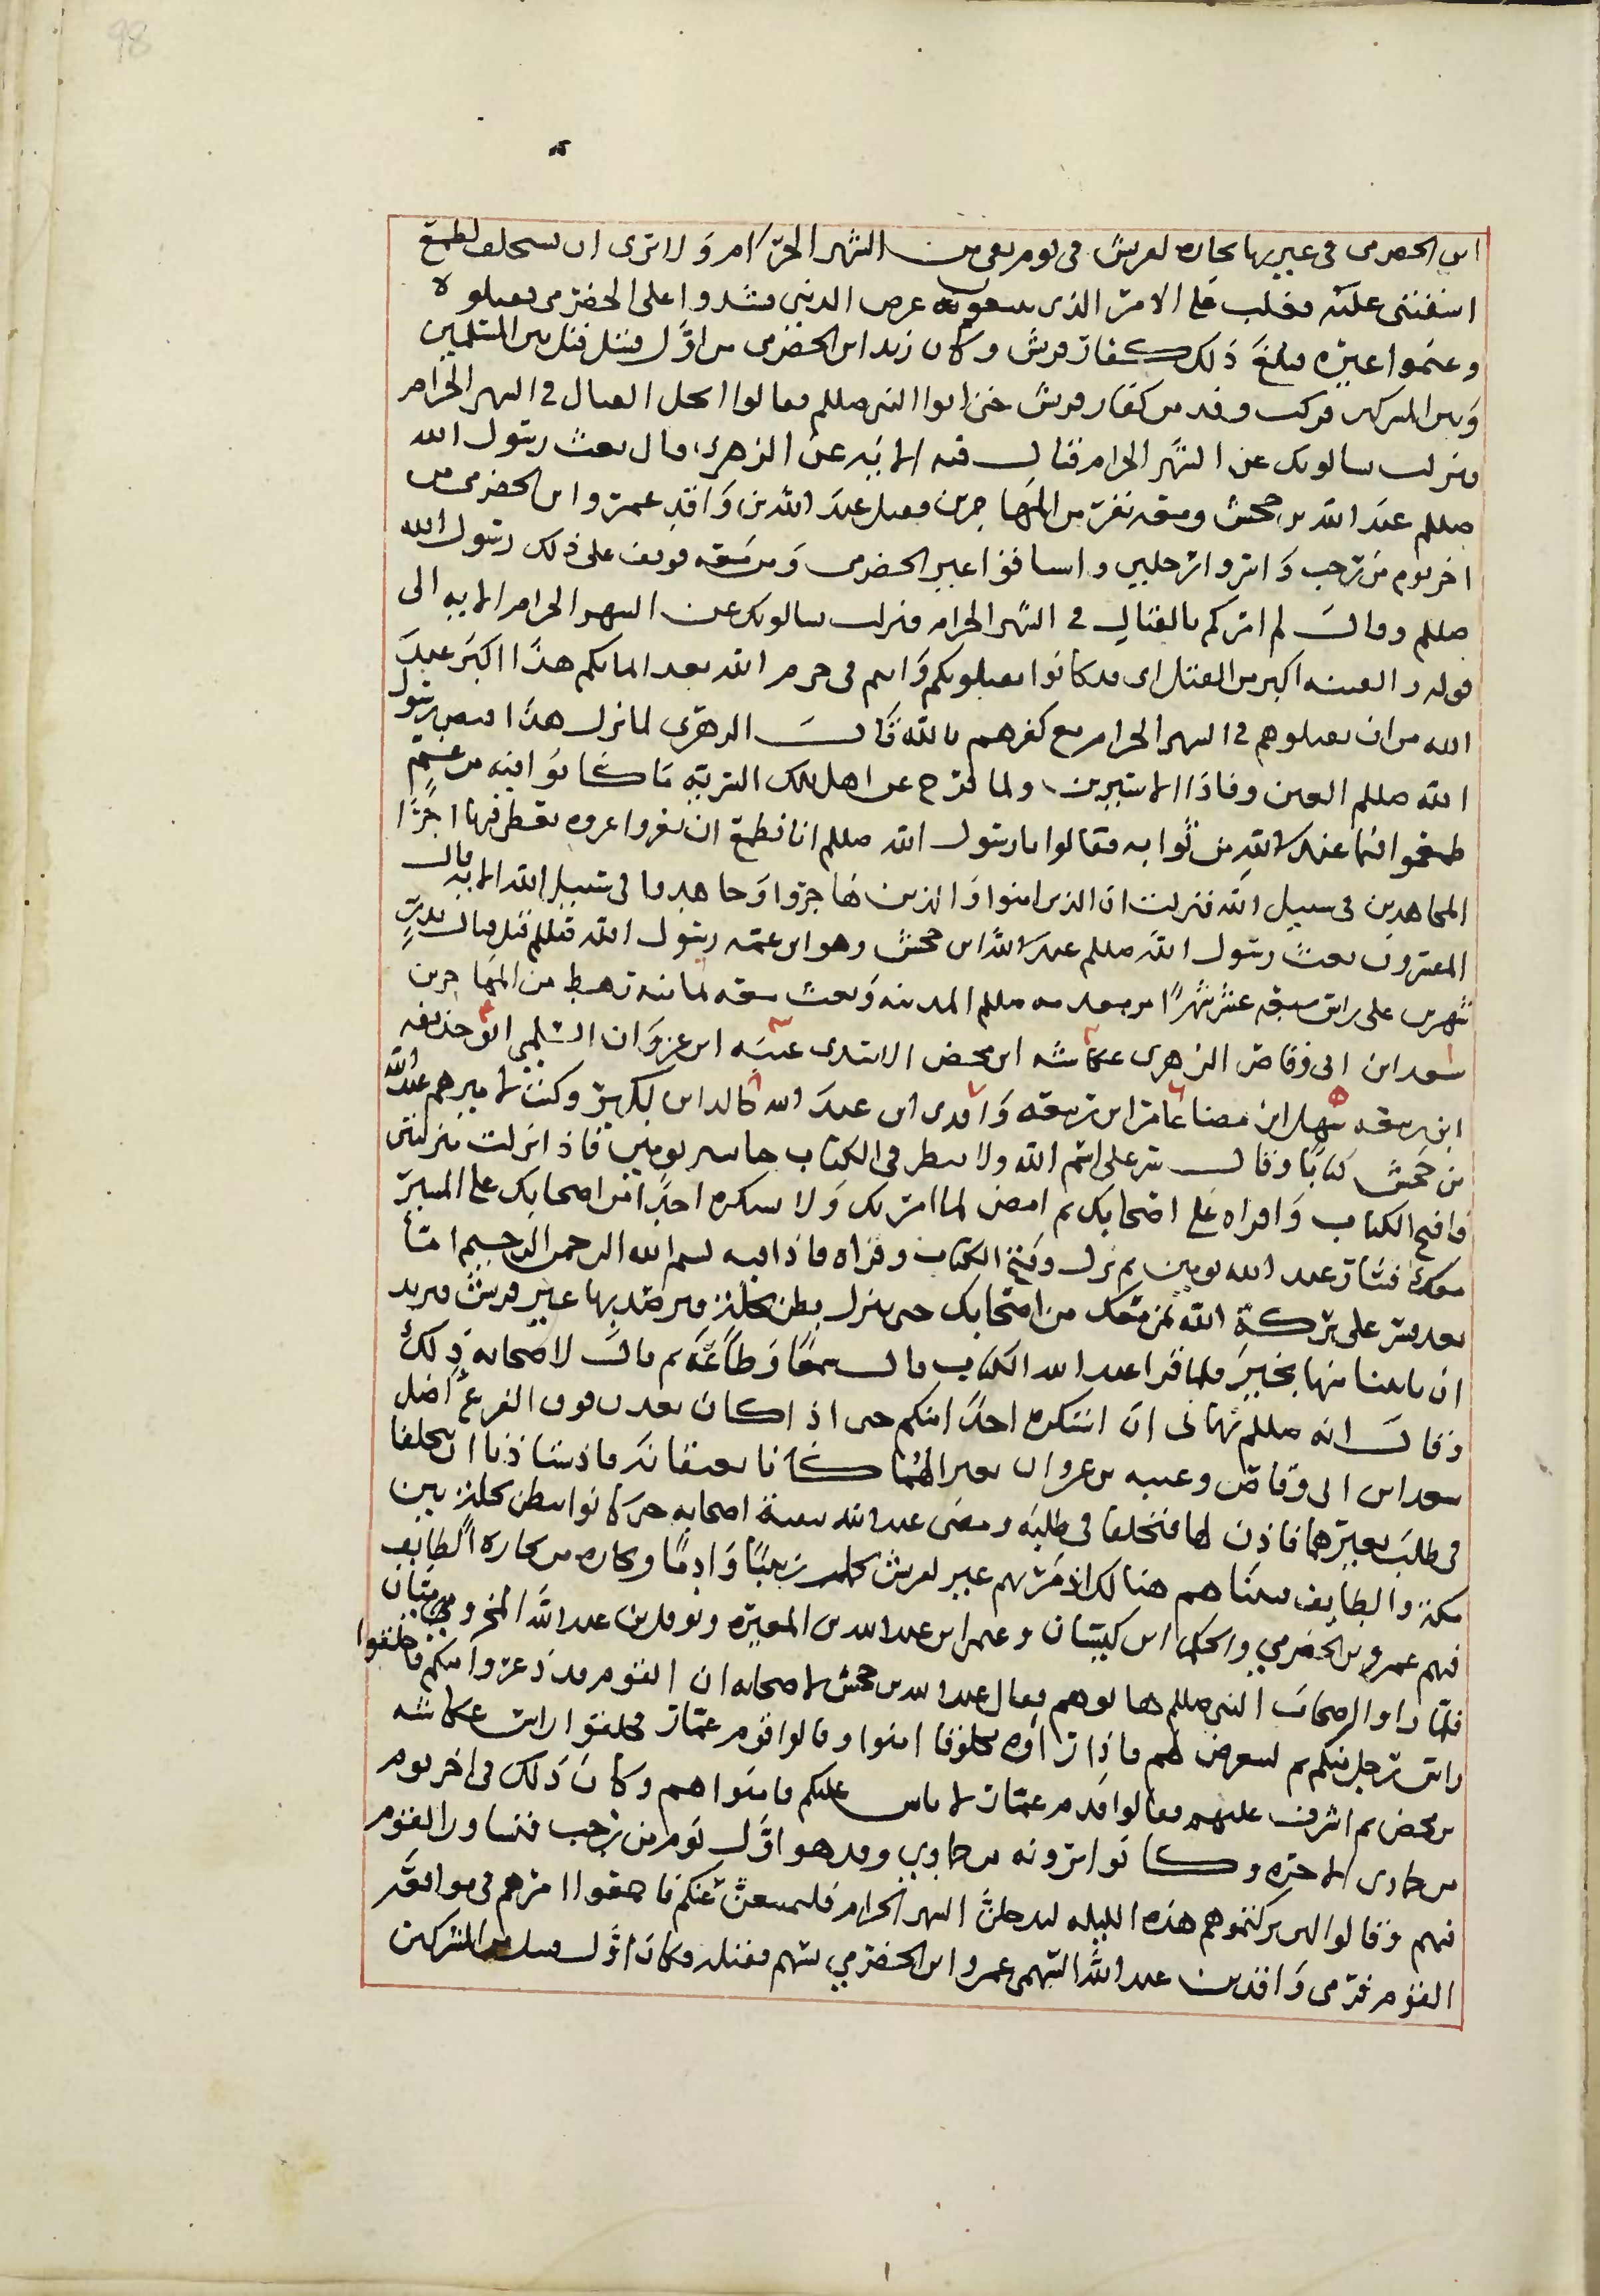 98
ابن الحضرمى فى عير بها تجاره لقريش فى يوم بقى من الشهر الحرام ولا ترى ان نستحله لطمع
اشفيتم عليه فغلب على الامر الذى يريدون عرض الدنيا فشدوا على الحضرمى فقتلوه
وغنموا عيره فبلغ ذلك كفار قريش وكان زيد ابن الحضرمى من اول قتيل قتل بين المسلمين
وبين المشركين فركب وفد من كفار قريش حتى اتوا النبى صللم فقالوا اتحل القتال فى الشهر الحرام
فنزلت يسالونك عن الشهر الحرام قتال فيه الايه عن الزهرى قال بعث رسول الله
صللم عبد الله بن جحش ومعه نفر من المهاجرين فقتل عبد الله بن واقد عمرو ابن الحضرمى فى
اخر يوم من رجب واسروا رجلين واساقوا عير الحضرمى ومن معه فوقف على ذلك رسول الله
صللم وقال لم امركم بالقتال فى الشهر الحرام فنزلت يسالونك عن الشهر الحرام الايه الى
قوله والفتنه اكبر من القتل اى قد كانوا يفتلونكم وانتم فى حرم الله بعد ايمانكم هذا اكبر عند
الله من ان تقتلوهم فى الشهر الحرام مع كفرهم بالله قال الزهرى لما نزل هذا قبض رسول
الله صللم العير وفادا الاسيرين ولما فرج عن اهل تلك السريه ما كانوا فيه من غم
طمعوا فيما عند الله من ثوابه فقالوا يا رسول الله صللم انا نطمع ان تغزوا غزوه نعطى فيها اجر
المجاهدين فى سبيل الله فنزلت ان الذين امنوا والذين هاجروا وجاهدوا فى سبيل الله الايه قال
المفسرون بعث رسول الله صللم عبد الله ابن جحش وهو ابن عمه رسول الله صللم قبل قتال بدر
بشهرين على راس سبعه عشر شهرا من مقدمه صللم المدينه وبعث معه ثمانيه رهط من المهاجرين
سعد ابن ابى وقاص الزهرى عكاشه ابن محصن الاسدى عتبه ابن غزوان السلمى ابو حذيفه
ابن ربيعه سهل ابن بيضا عامر ابن ربيعه واقدى ابن عبد الله خالد ابن البكير وكتب لاميرهم عبد الله
بن جحش كتابا وقال سر على اسم الله ولا تنظر فى الكتاب حتى تسير يومين فاذا نزلت منزلتين
فافتح الكتاب واقراه على اصحابك ثم امض لما امرتك ولا تستكره احدا من اصحابك على المسير
معك فسار عبد الله يومين ثم نزل وفتح الكتاب وقراه فاذا فيه بسم الله الرحمن الرحيم اما
بعد فسر على بركة الله بمن معك من اصحابك حتى تنزل بطن نخله فترصد بها عير قريش فتريد
ان تاتينا منها بخير فلما قرا عبد الله الكتاب قال سمعا وطاعة ثم قال لاصحابه ذلك
وقال انه صللم نهانى ان استكره احدا منكم حتى اذا كان بمعدن فوق الفرع اضل
سعد ابن ابى وقاص وعتبه بن غزوان بعيرا لهما كانا يعتقبانه فاستاذنا ان يتخلفا
فى طلب بعيرهما فاذن لهما فتخلفا فى طلبه ومضى عبد الله ببقية اصحابه حتى كانوا ببطن نخله بين
مكه والطايف فبينا هم هنالك اذ مرت بهم عير لقريش تحمل زبيبا وادما وتجاره من تجارة الطايف
فيهم عمرو بن الحضرمى والحكم ابن كيسان وعثمان ابن عبد الله بن المغيره ونوفل بن عبد الله المخزوميان
فلما راوا اصحاب النبى صللم هابوهم فقال عبد الله بن جحش لاصحابه ان القوم قد ذعروا منكم فاحلقوا
راس رجل منكم ثم ليعرض لهم فاذا راوه محلوقا امنوا وقالوا قوم عمار فحلقوا راس عكاشه
بن محصن ثم اشرف عليهم فقالوا قوم عمار لا باس عليكم فامنوا هم وكان ذلك فى اخر يوم
من جمادى الاخره وكانوا يرونه من جمادى وقد هو اول يوم من رجب فتشاور القوم
فيهم وقالوا لين تركتموهم هذه الليله ليدخلن الشهر الحرام فليمتنعن منكم فاجمعوا امرهم فى مواقعه
القوم فرمى واقد بن عبد الله السهمى عمرو ابن الحضرمى بسهم فقتله وكان اول قتيل من المشركين